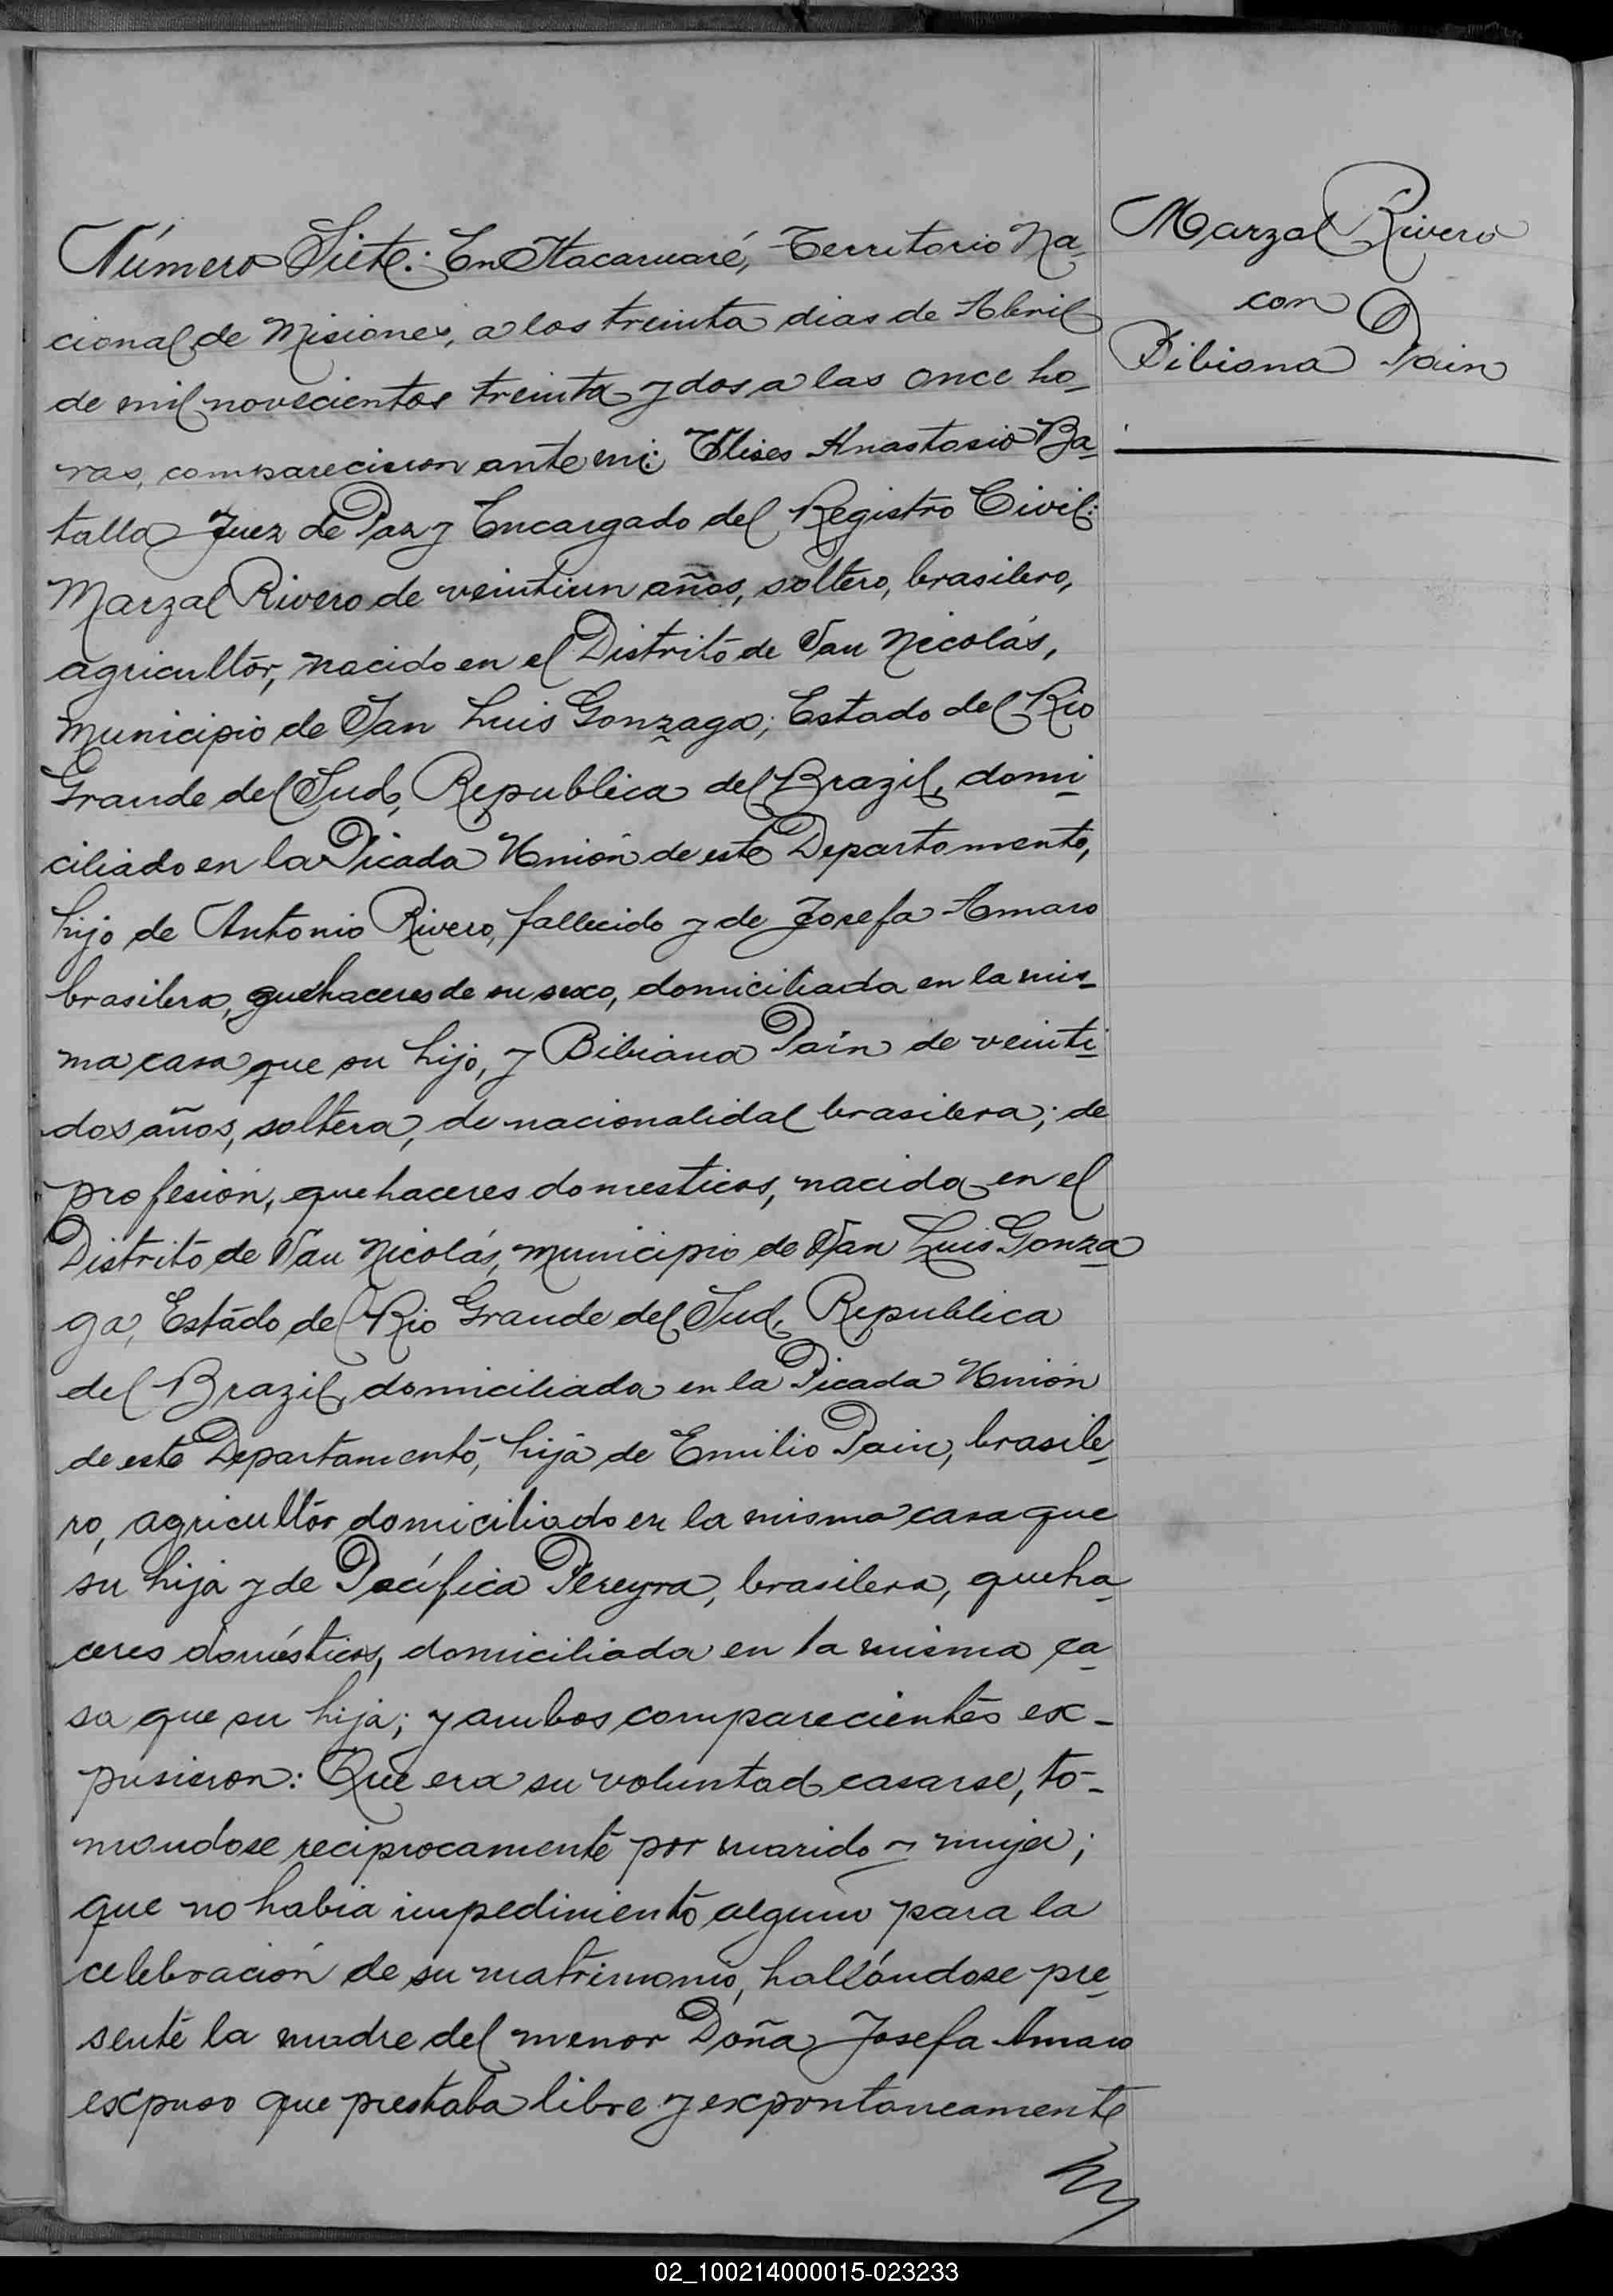 Número Siete: En Itacaruaré, Territorio Na-
cional de Misiones, a los treinta dias de Abril
de mil novecientos treinta y dos a las once ho-
ras, comparecieron ante mi: Ulises Anastasio Ba-
talla Juez de Paz y Encargado del Registro Civil:
Marzal Rivero de veintiun años, soltero, brasilero,
agricultor, nacido en el Distrito de San Nicolás,
Municipio de San Luis Gonzaga; Estado del Rio
Grande del Sud, Republica del Brazil, domi-
ciliado en la Picada Unión de este Departamento,
hijo de Antonio Rivero, fallecido y de Josefa Amaro
brasilera, quehaceres de su sexo, domiciliada en la mis-
ma casa que su hijo, y Bibiana Pain de veinti-
dos años, soltera, de nacionalidal brasilera; de
profesión, quehaceres domesticos, nacida en el
Distrito de San Nicolás, Municipio de San Luis Gonza-
ga, Estado del Rio Grande del Sud, Republica
del Brazil, domiciliada en la Picada Unión
de este Departamento, hija de Emilio Pain, brasile-
ro, agricultor domiciliado en la misma casa que
su hija y de Pacífica Pereyra, brasilera, queha-
ceres domésticos, domiciliada en la misma ca-
sa que su hija; y ambos comparecientes ex-
pusieron: Que era su voluntad casarse, to-
mandose reciprocamente por marido y mujer;
que no habia impedimento alguno para la
celebración de su matrimonio, hallándose pre-
sente la madre del menor Doña Josefa Amaro
expuso que prestaba libre y expontaneamente
Marzal Rivero
con
Bibiana Pain
02_100214000015-023233